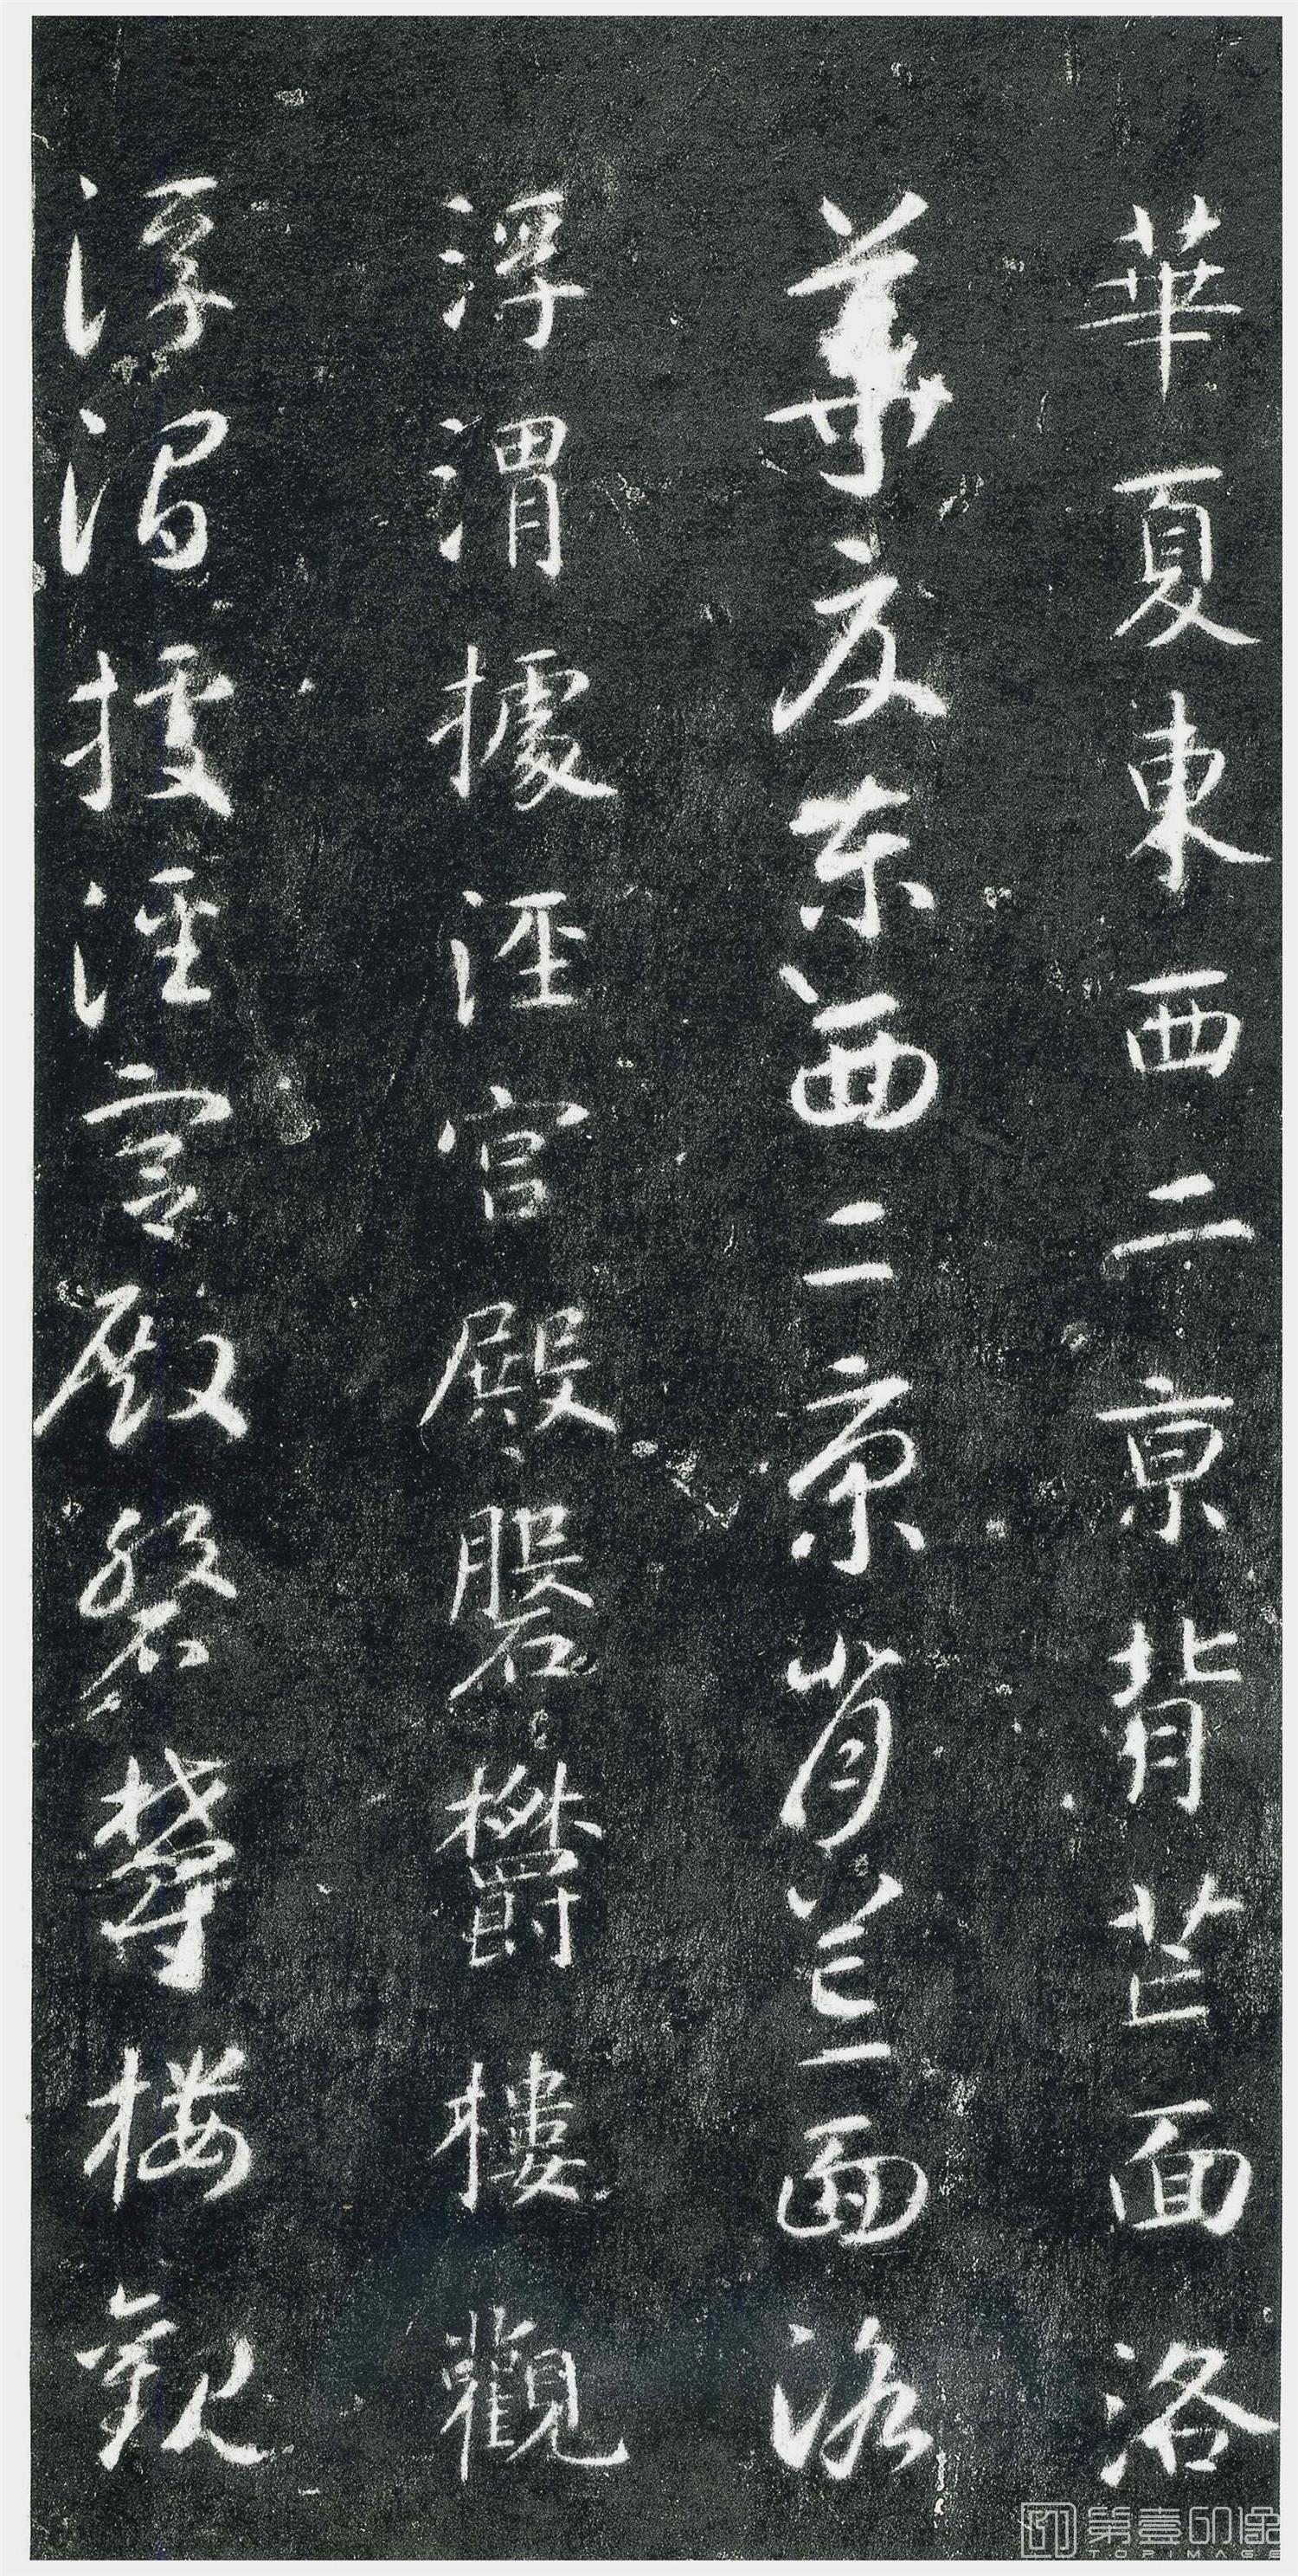 華夏東西二京背芒面洛
華夏東西二京背芒面洛
浮渭據涇宫殿磐欝樓觀
浮渭據涇宫殿磐欝樓觀
第壹印像
TOPIMAGE